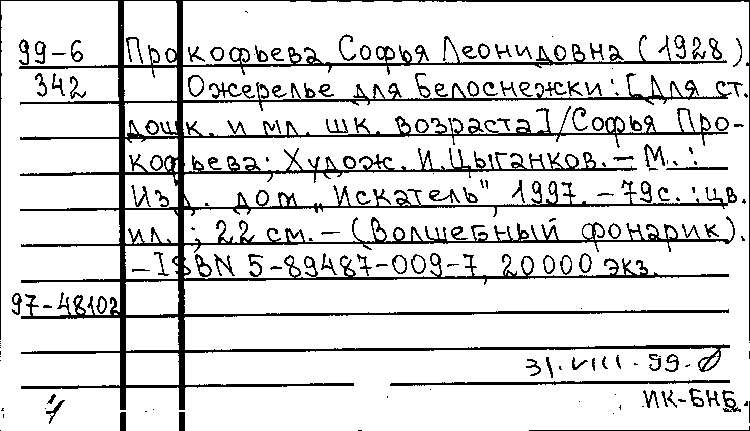 99-6 Прокофьева, Софья Леонидовна (1928).
342 Ожерелье для Белоснежки: [Для ст.
дошк. и мл. шк. возраста]/Софья Про-
кофьева; Худож. И.Цыганков. – М. :
Изд. дом „Искатель", 1997. – 79с. : цв.
ил. ; 22 см. – (Волшебный фонарик).
– ISBN 5-89487-009-7, 20000 экз.
97-48102
31.VIII.99.
ИК-БНБ.